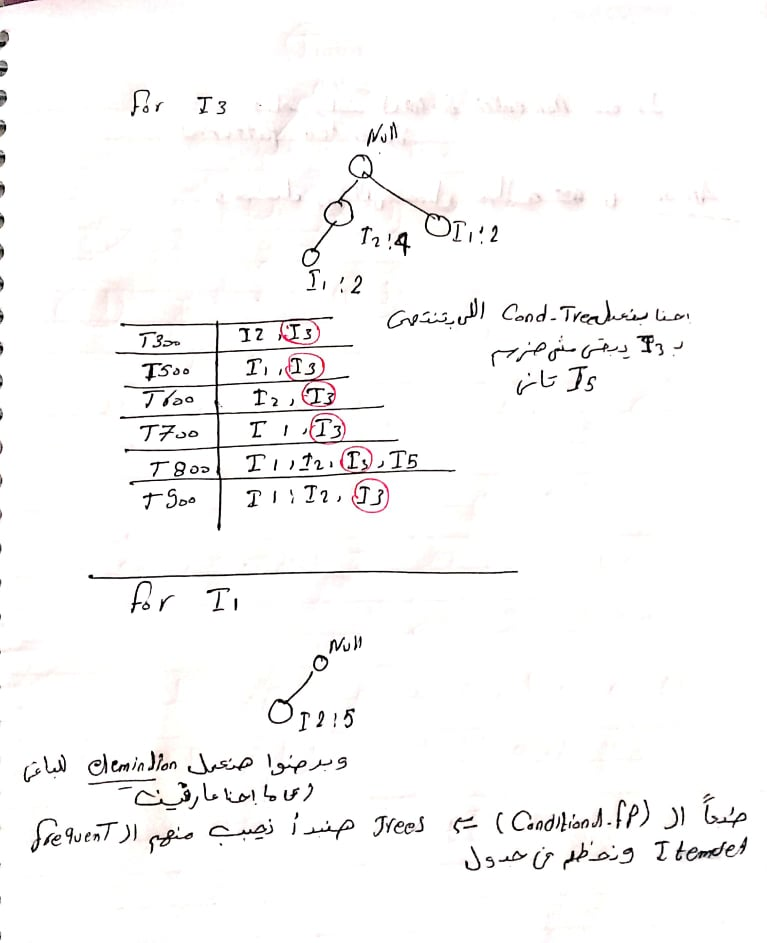 for I3
Null
I2:4
I1:2
I1:2
احنا بنعمل Cond-Tree اللي بتنتهي
بـ I3 يبقى مش هنرسم
I5 تاني
T300 I2, I3
T500 I1, I3
T600 I2, I3
T700 I1, I3
T800 I1, I2, I3, I5
T900 I1, I2, I3
for I1
Null
I2:5
وبرضوا هنعمل elemindion للباقي
زي ما احنا عارفين
طبعاً ال (Conditional-fp) Trees هنبدأ نجيب منهم ال frequenT
Itemset ونحطهم في جدول